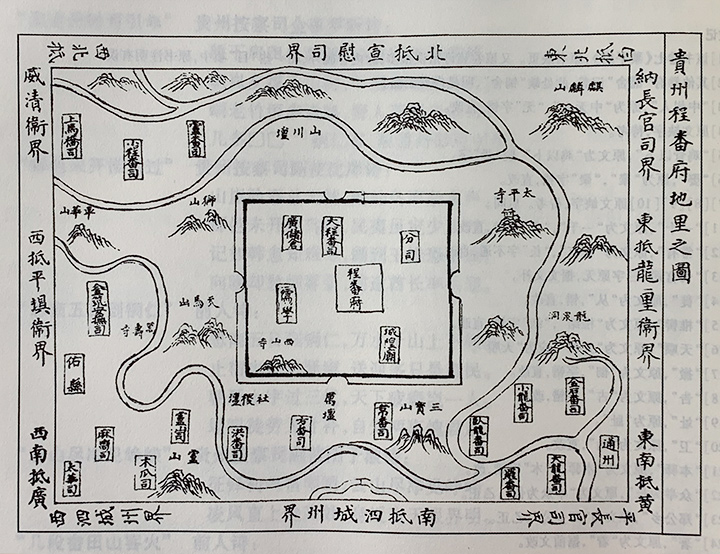 貴州程番府地里之圖
東北抵向
納長官司界
東抵龍里衛界
東南抵黄
平長官司界
北抵宣慰司界
西北抵
威清衛界
西抵平壩衛界
西南抵廣
西泗城州界
南抵泗城州界
麒麟山
山川壇
太平寺
上馬橋司
小程番司
盧番司
獅山
華山
廣儲倉
大程番司
分司
程番府
儒學
城隍廟
西山寺
天馬山
金筑安撫司
聖壽寺
佑縣
龍泉洞
社稷壇
厲壇
三寶山
小龍番司
金石番司
臥龍番司
大龍番司
羅番司
通州
韋番司
方番司
洪番司
盧山司
靈山
木瓜司
麻嚮司
大華司